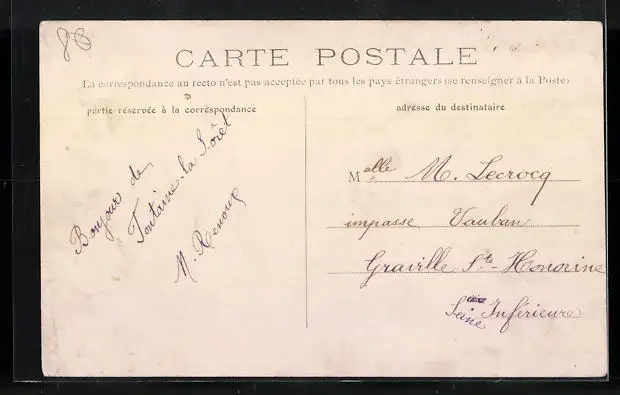 CARTE POSTALE
La correspondance au recto n'est pas acceptée par tous les pays étrangers (se renseigner à la Poste)
partie réservée à la correspondance
adresse du destinataire
Bonjour de
Fontaine-la-Sôret
M. Renoux
Melle M. Lecrocq
impasse Vauban
Graville Ste-Honorine
Seine Inférieure